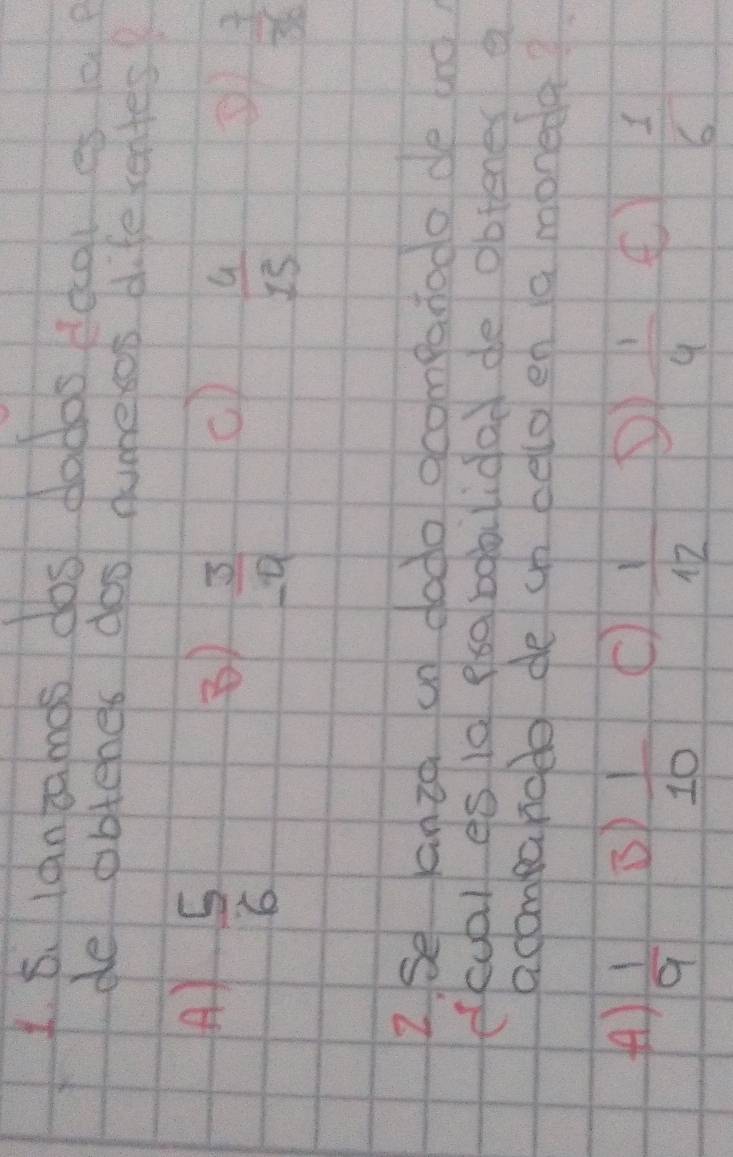 1. Si lanzamos dos dados ¿cual es la
de obtener dos numeros diferentes?
A) 5/6 B) 3/4 C) 4/15 D)
2. Se lanza un dado acompañado de una
¿cual es la probabilidad de obtener
acompañado de un celo en la moneda?
A) 1/9 B) 1/10 C) 1/12 D) 1/4 E) 1/6